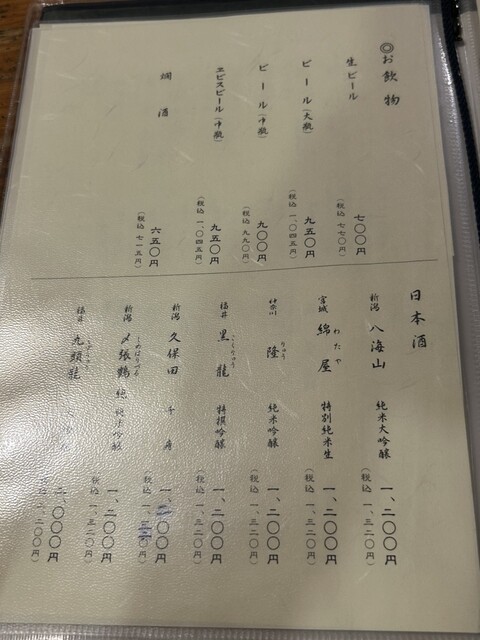 ◎お飲物
生ビール 七〇〇円
(税込 七七〇円)
ビール(大瓶) 九五〇円
(税込 一、〇四五円)
ビール(中瓶) 九〇〇円
(税込 九九〇円)
ヱビスビール(中瓶) 九五〇円
(税込 一、〇四五円)
燗酒 六五〇円
(税込 七一五円)
日本酒
新潟 八海山 純米大吟醸 一、二〇〇円
(税込 一、三二〇円)
宮城 綿屋 わたや 特別純米生 一、二〇〇円
(税込 一、三二〇円)
神奈川 隆 りゅう 純米吟醸 一、二〇〇円
(税込 一、三二〇円)
福井 黒龍 こくりゅう 特撰吟醸 一、二〇〇円
(税込 一、三二〇円)
新潟 久保田 千寿
新潟 〆張鶴 しめはりつる 純 純米吟醸 一、二〇〇円
(税込 一、三二〇円)
福井 九頭龍 くずりゅう
二、〇〇〇円
二、二〇〇円)